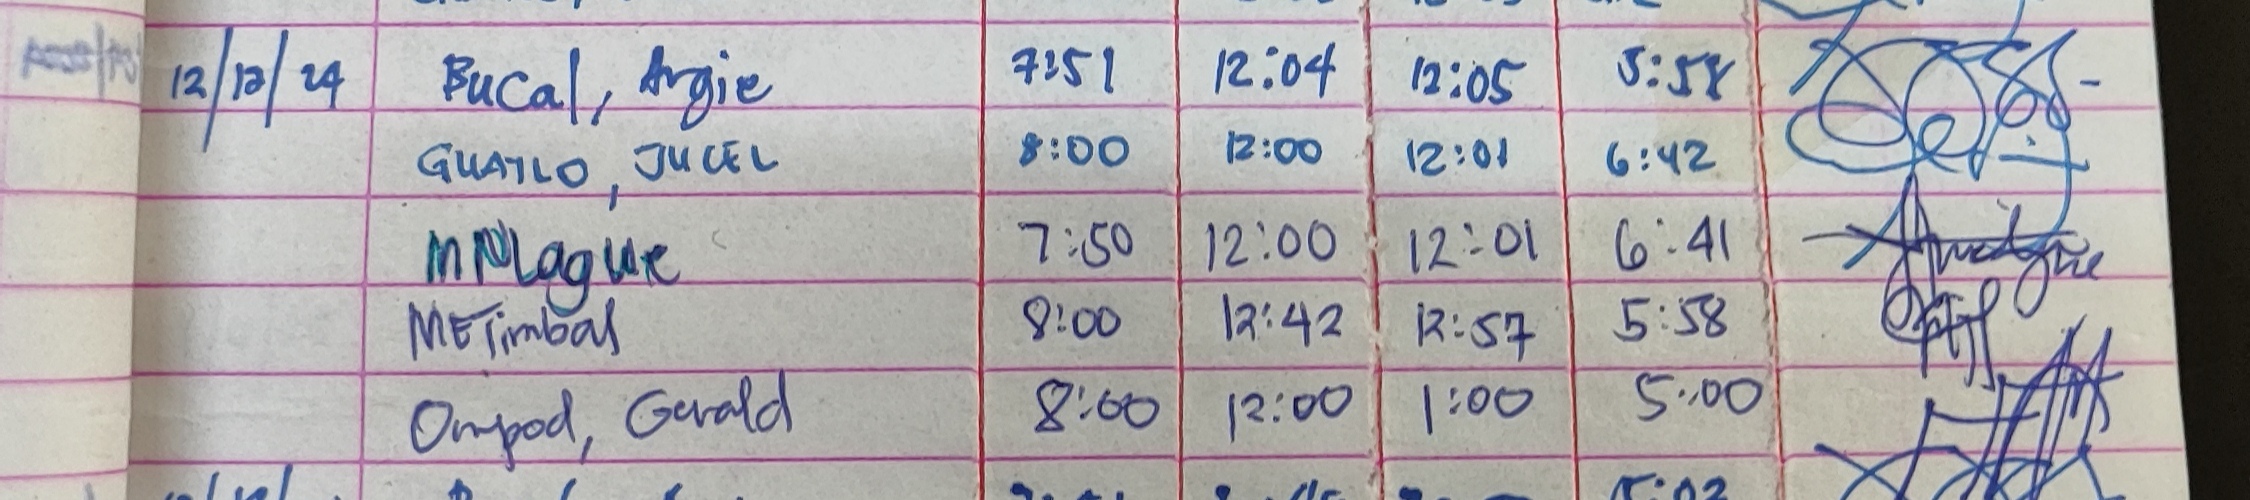 12/12/24 Bucal, Argie 7:51 12:04 12:05 5:58
GUATLO, JUCEL 8:00 12:00 12:01 6:42
MNLague 7:50 12:00 12:01 6:41
METimbal 8:00 12:42 12:57 5:58
Ompod, Gerald 8:00 12:00 1:00 5:00